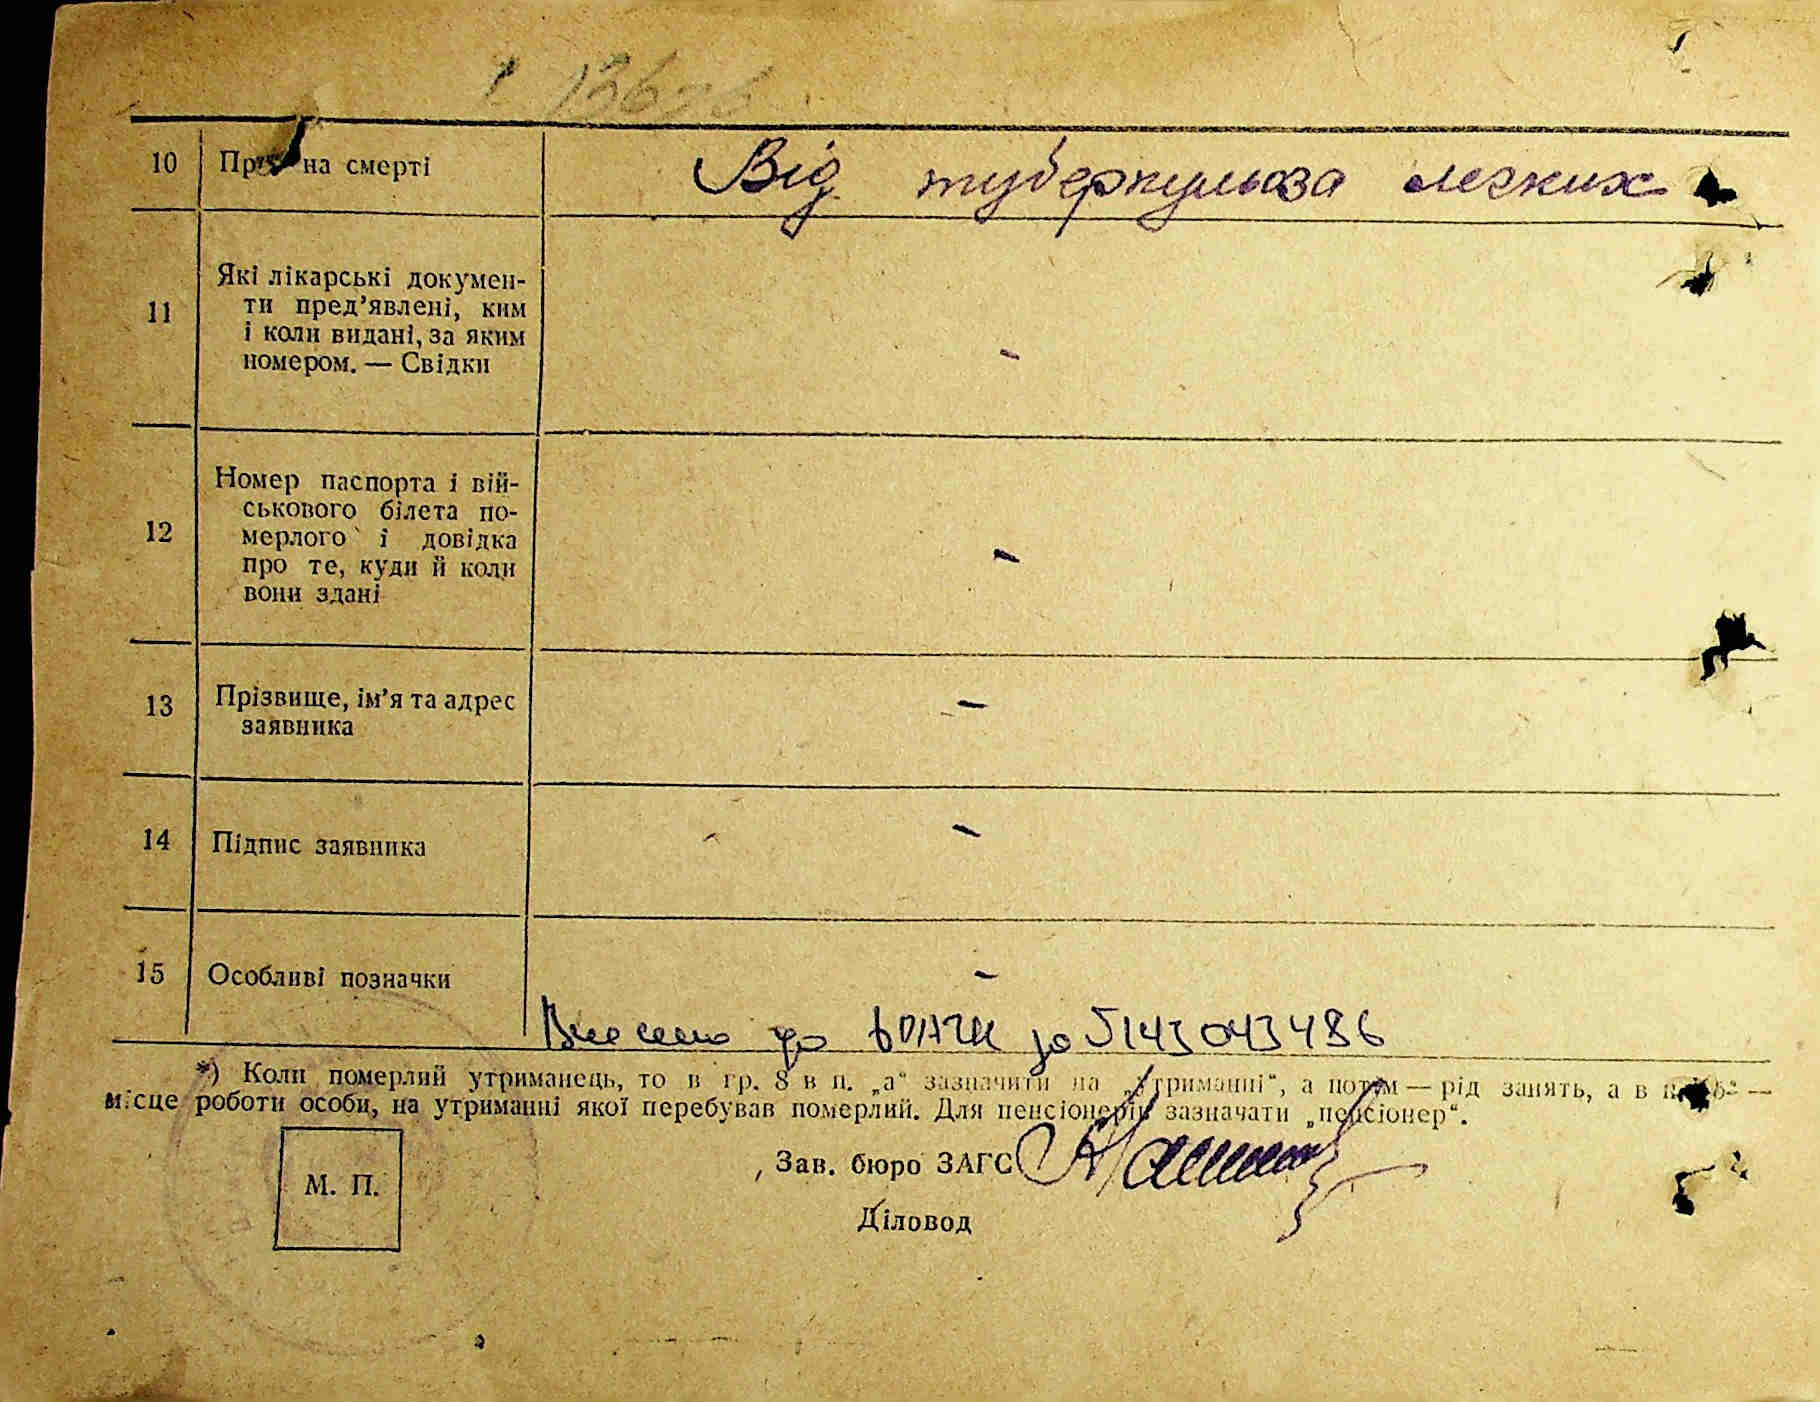 10 При на смерті Від туберкульоза легких
11 Які лікарські докумен-
ти пред’явлені, ким
і коли видані, за яким
номером. — Свідки -
12 Номер паспорта і вій-
ськового білета по-
мерлого і довідка
про те, куди й коли
вони здані -
13 Прізвище, ім’я та адрес
заявника -
14 Підпис заявника -
15 Особливі позначки -
Внесено до ВПАЗК за 5143043486
*) Коли померлий утриманець, то в гр. 8 в п. „а“ зазначити на „утриманні“, а потім — рід занять, а в п. „б“ —
місце роботи особи, на утриманні якої перебував померлий. Для пенсіонерів зазначати „пенсіонер“.
М. П.
Зав. бюро ЗАГС
Діловод